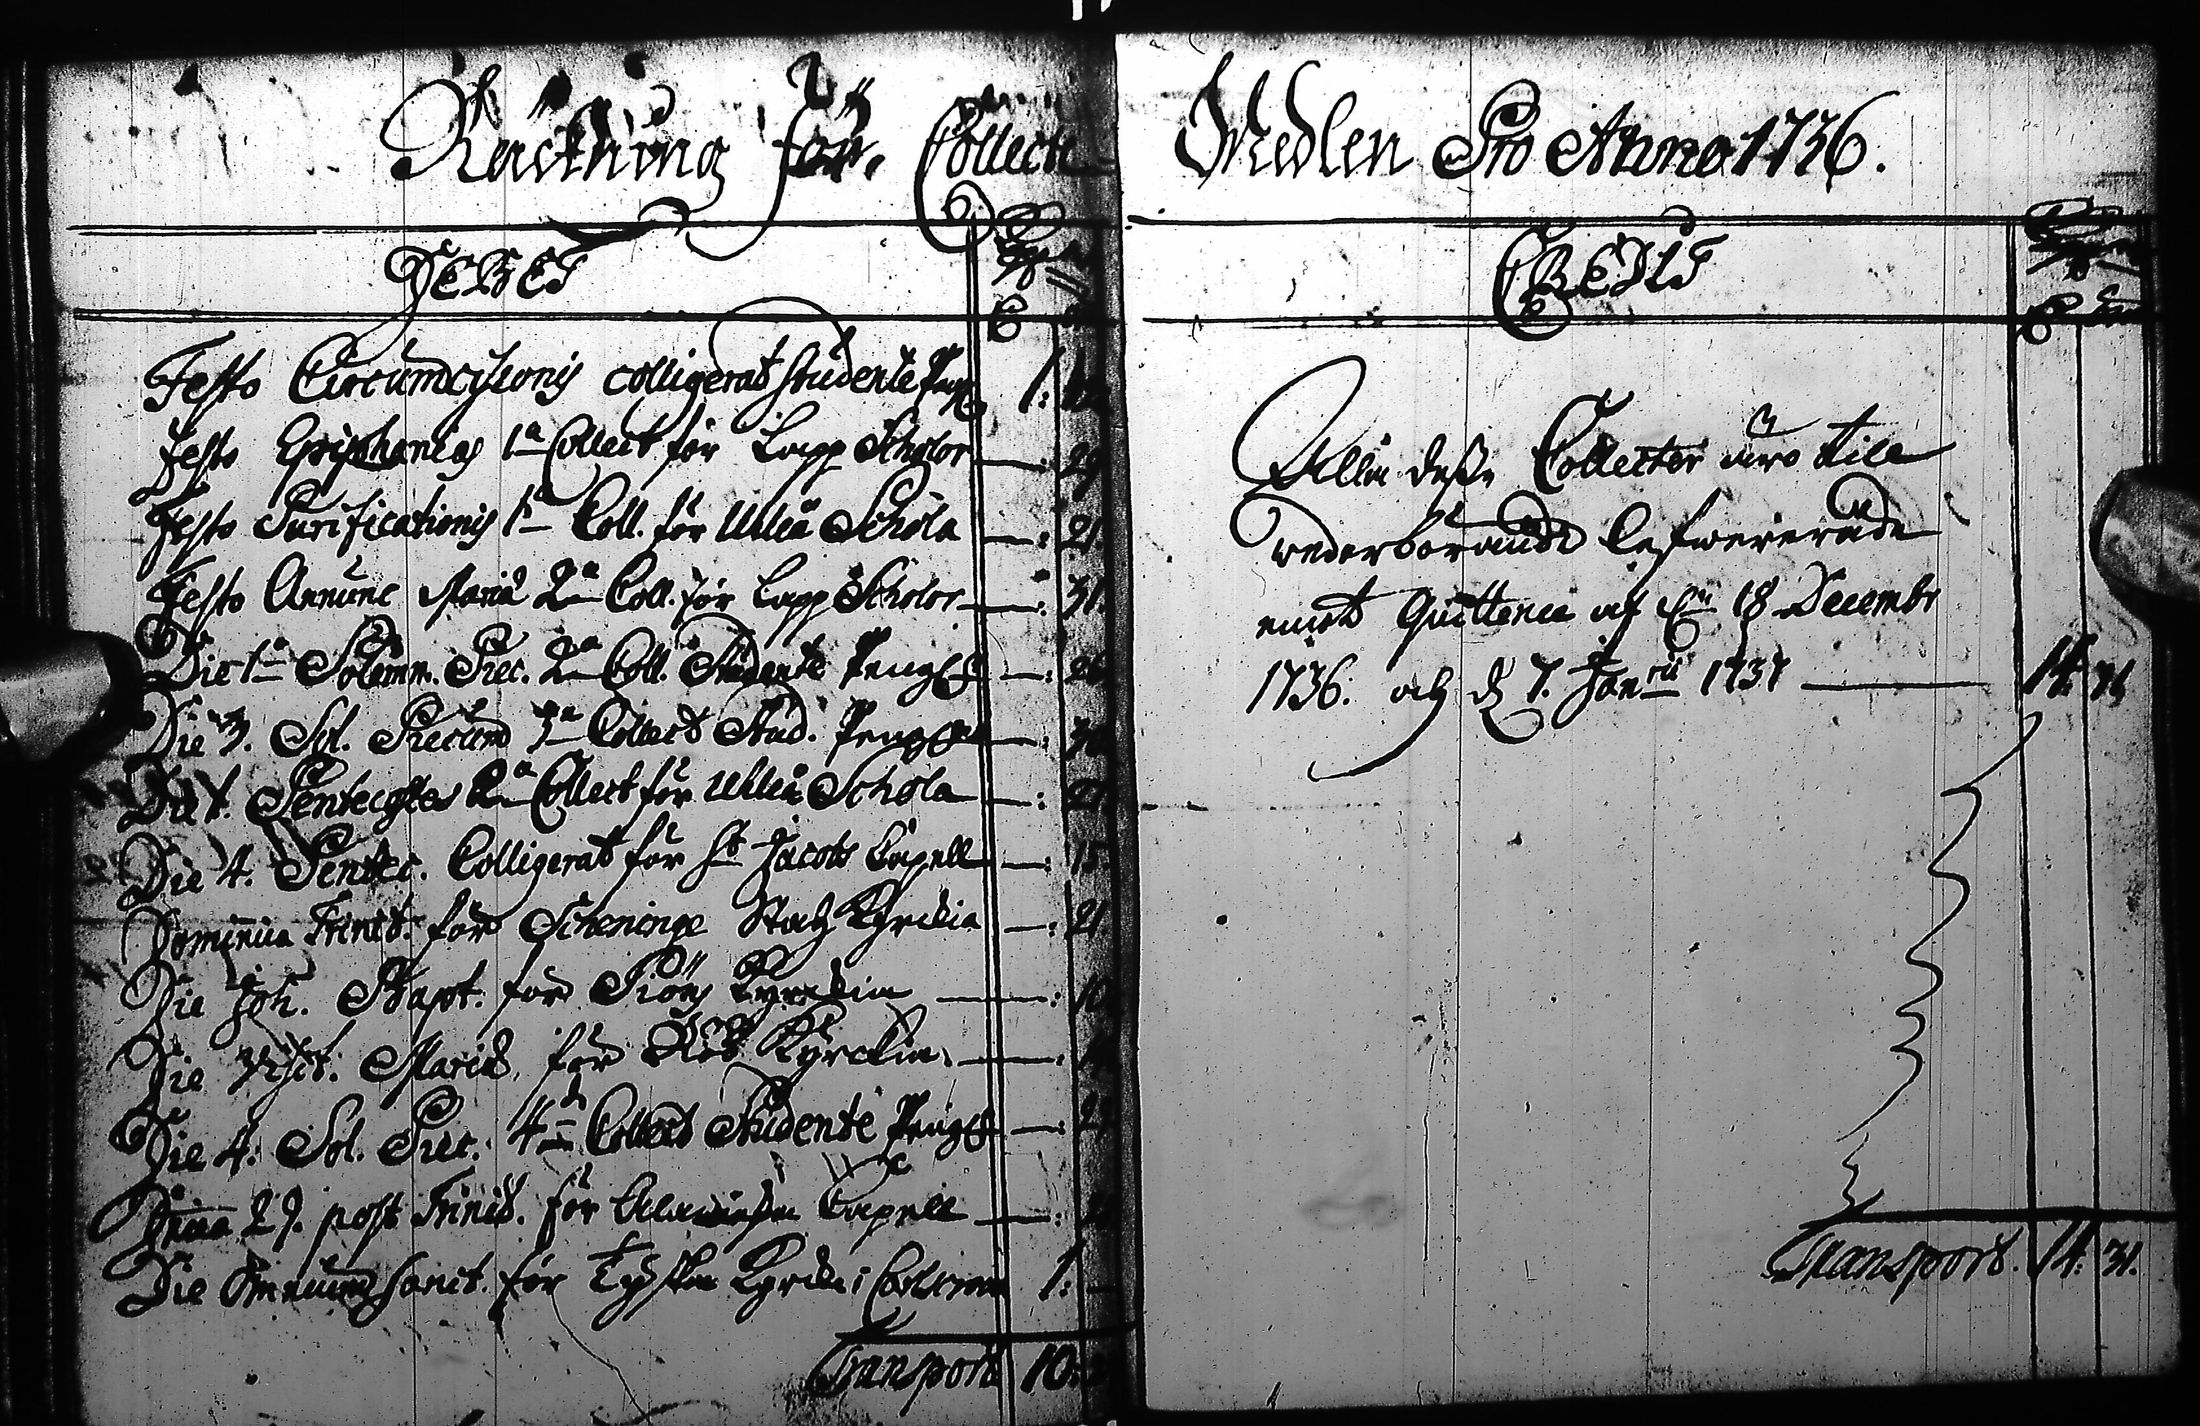 Räckning för Collect
DEBET
Festo Circumcisionis colligerat studente Peng 1:
Festo Epiphanias 1a Collect för Lapp Scholor —: 29
Festo Purificationis 1a Coll. för Uhleå Schola —: 21
Festo Annunc Mariæ 2a Coll. för Lapp Scholor —: 31
Die 1a Solemn. Prec. 2a Coll. Studente Peng —: 26
Die 3. Sol. Precum 3a Collect Stud. Peng —: 30
Die 1. Pentecostes 2a Collect för Uhleå Schola —: 27
Die 4. Pentec. Colligerat för St Jacobs Capell —: 15
Dominica Trinit. för Scheninge Stadz Kyrckia —: 21
Die Joh. Bapt. för Kyrckia —: 10
Die Visit. Mariæ för Kyrckia —:
Die 4. Sol. Prec. 4a Collect Studente Peng —:
Dnica 2 . post Trinit. för Capell —:
Die Omnium Sanct. för Tyska Kyrckia i 1: —
Transport 10:
Medlen Pro Anno 1736.
CREDIT
Alla desse Collecter äro till
wederbörande lefwererade
emot Quittencie af d. 18 Decembr
1736. och d. 7. Janrii 1737 — 14: 31
Transport. 14: 31.